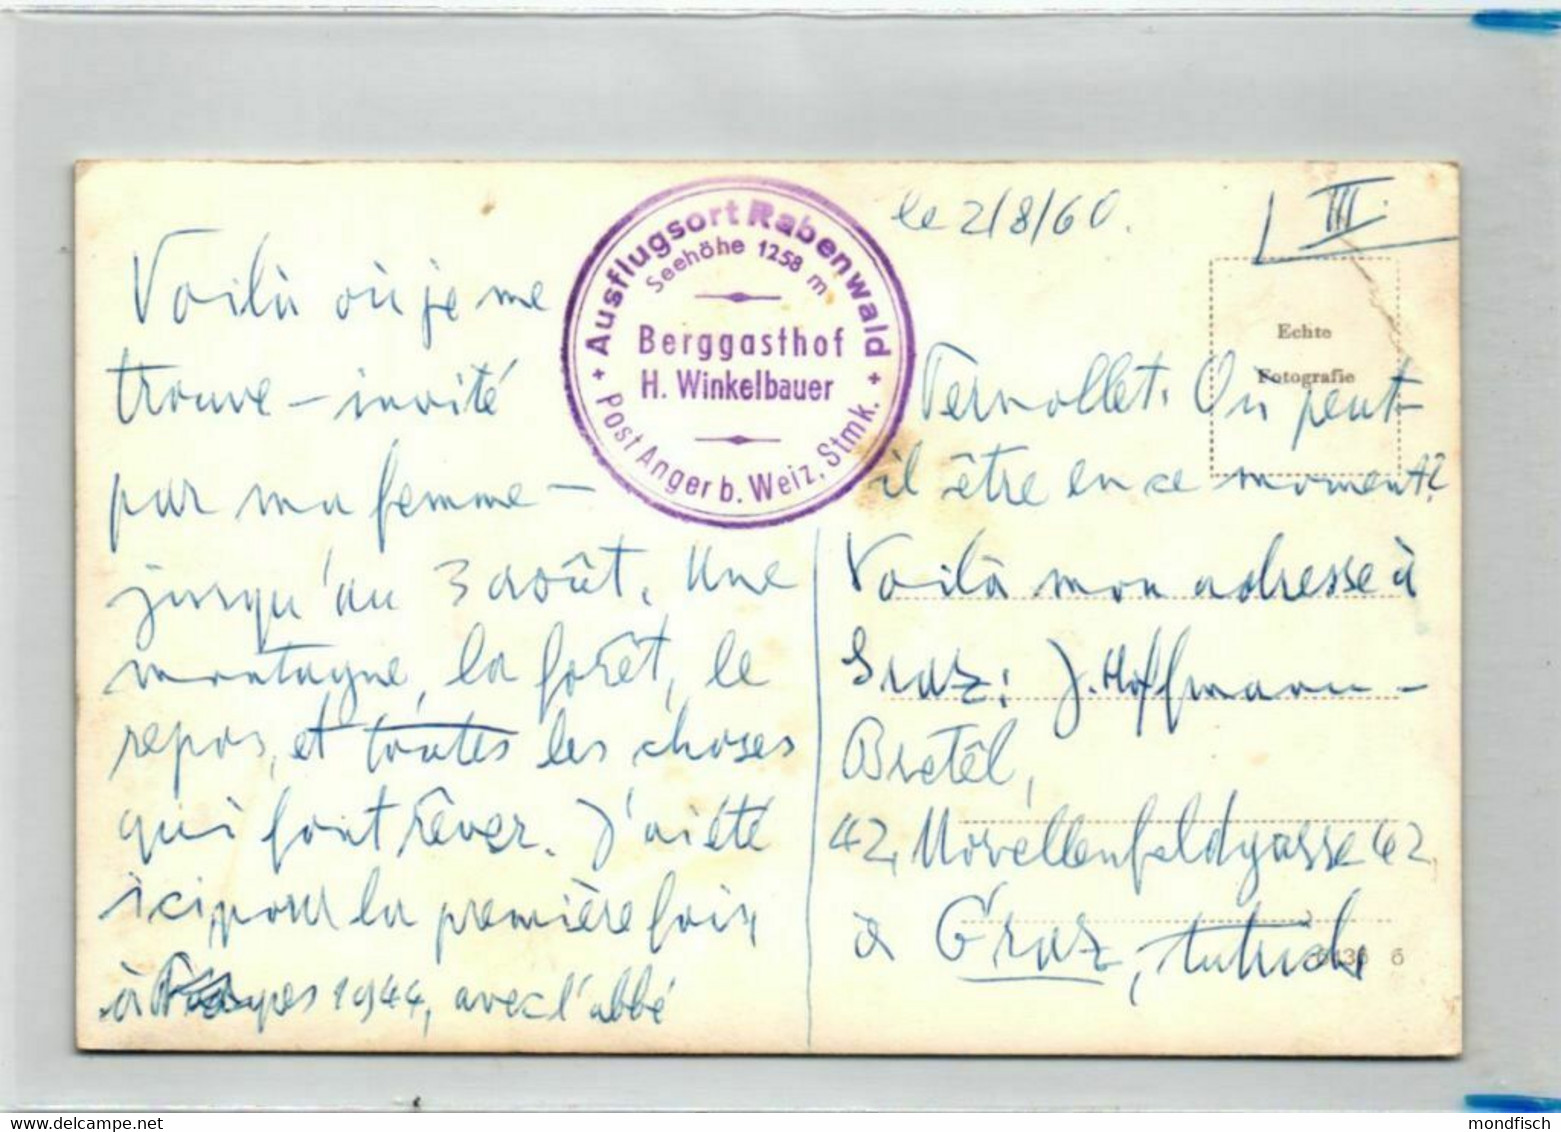 le 2/8/60.
III.
Voilà où je me
trouve – invité
par ma femme –
jusqu'au 3 août. Une
montagne, la forêt, le
repos, et toutes les choses
qui font rêver. J'ai été
ici pour la première fois,
à 1944, avec l'abbé
Ausflugsort Rabenwald
Seehöhe 1258 m
Berggasthof
H. Winkelbauer
Post Anger b. Weiz, Stmk.
Echte
Fotografie
Vernollet. Où peut-
il être en ce moment?
Voilà mon adresse à
Graz: J. Hoffmann –
Bretêl,
42, Morellenfeldgasse 42,
à Graz,
mondfisch